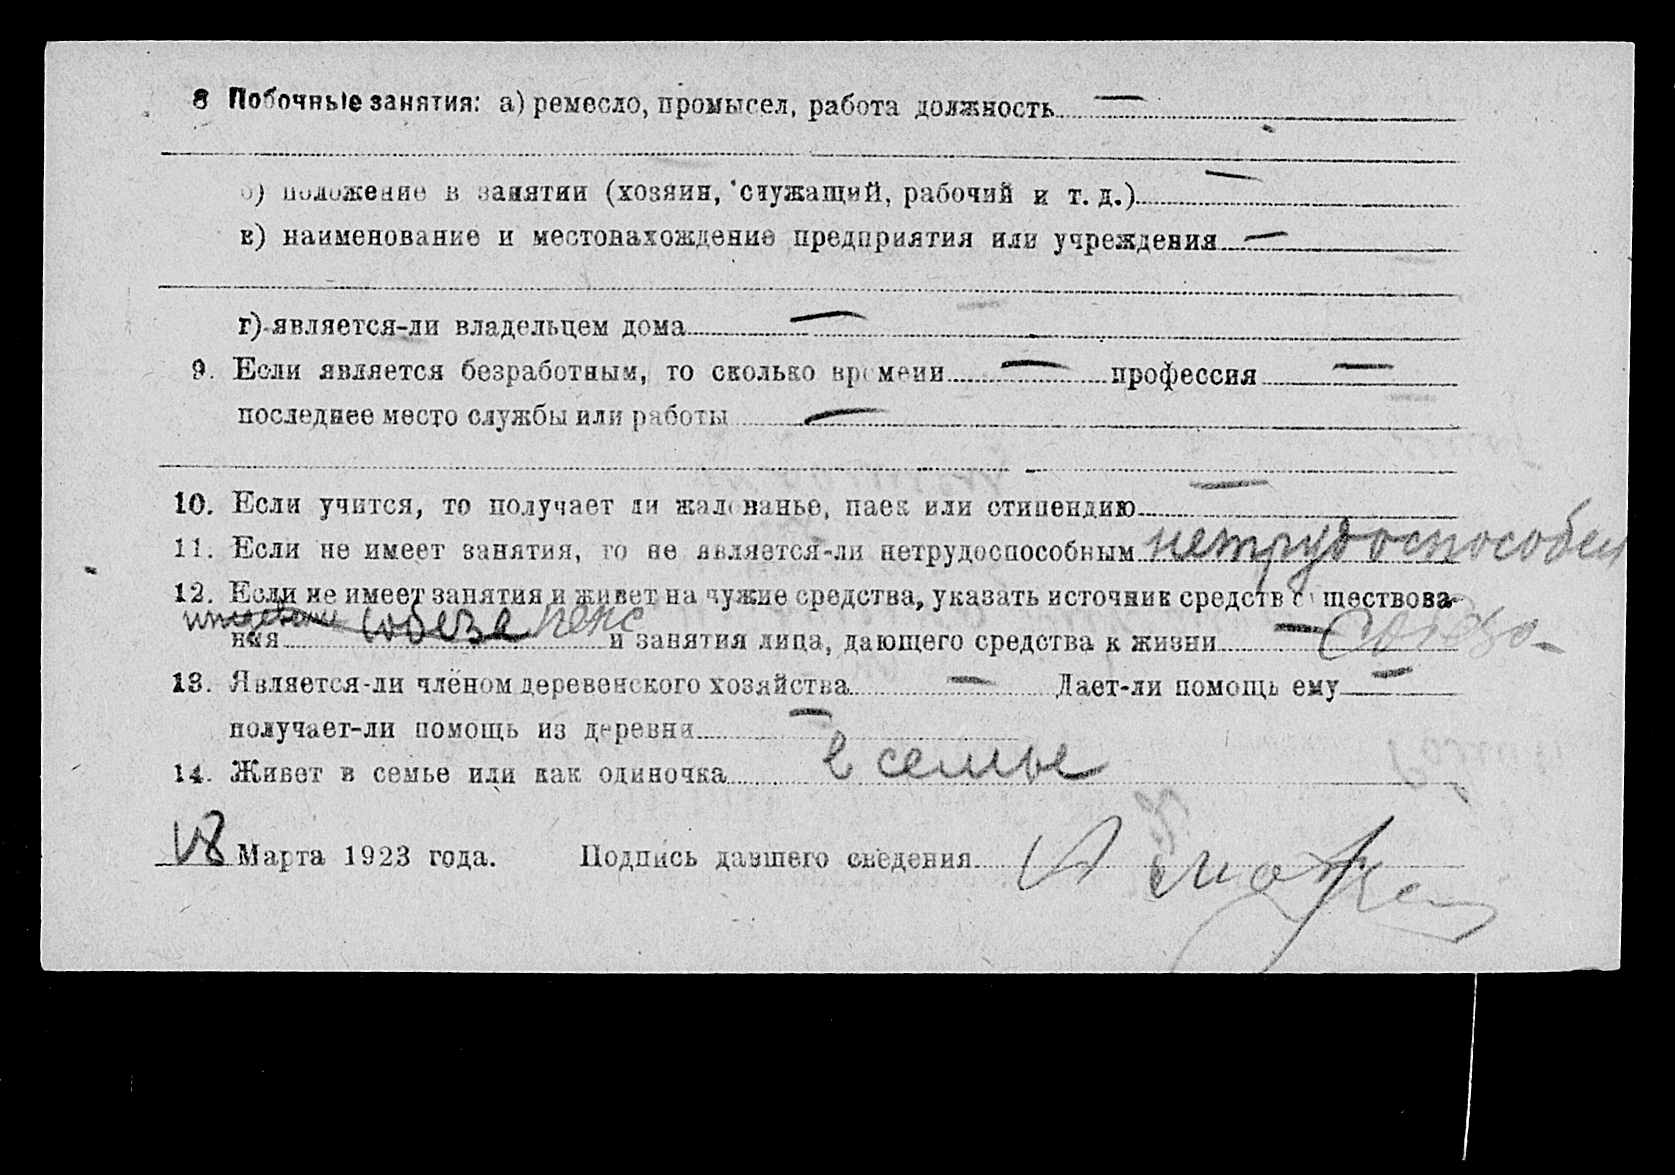 8 Побочные занятия: а) ремесло, промысел, работа должность —
б) положение в занятии (хозяин, служащий, рабочий и т. д.) —
в) наименование и местонахождение предприятия или учреждения —
г) является-ли владельцем дома —
9. Если является безработным, то сколько времени — профессия —
последнее место службы или работы —
10. Если учится, то получает ли жалованье, паек или стипендию —
11. Если не имеет занятия, то не является-ли нетрудоспособным нетрудоспособен
12. Если не имеет занятия и живет на чужие средства, указать источник средств существова-
собеза пенс
ния и занятия лица, дающего средства к жизни —
13. Является-ли членом деревенского хозяйства — Дает-ли помощь ему —
получает-ли помощь из деревни —
14. Живет в семье или как одиночка в семье
18 Марта 1923 года. Подпись давшего сведения